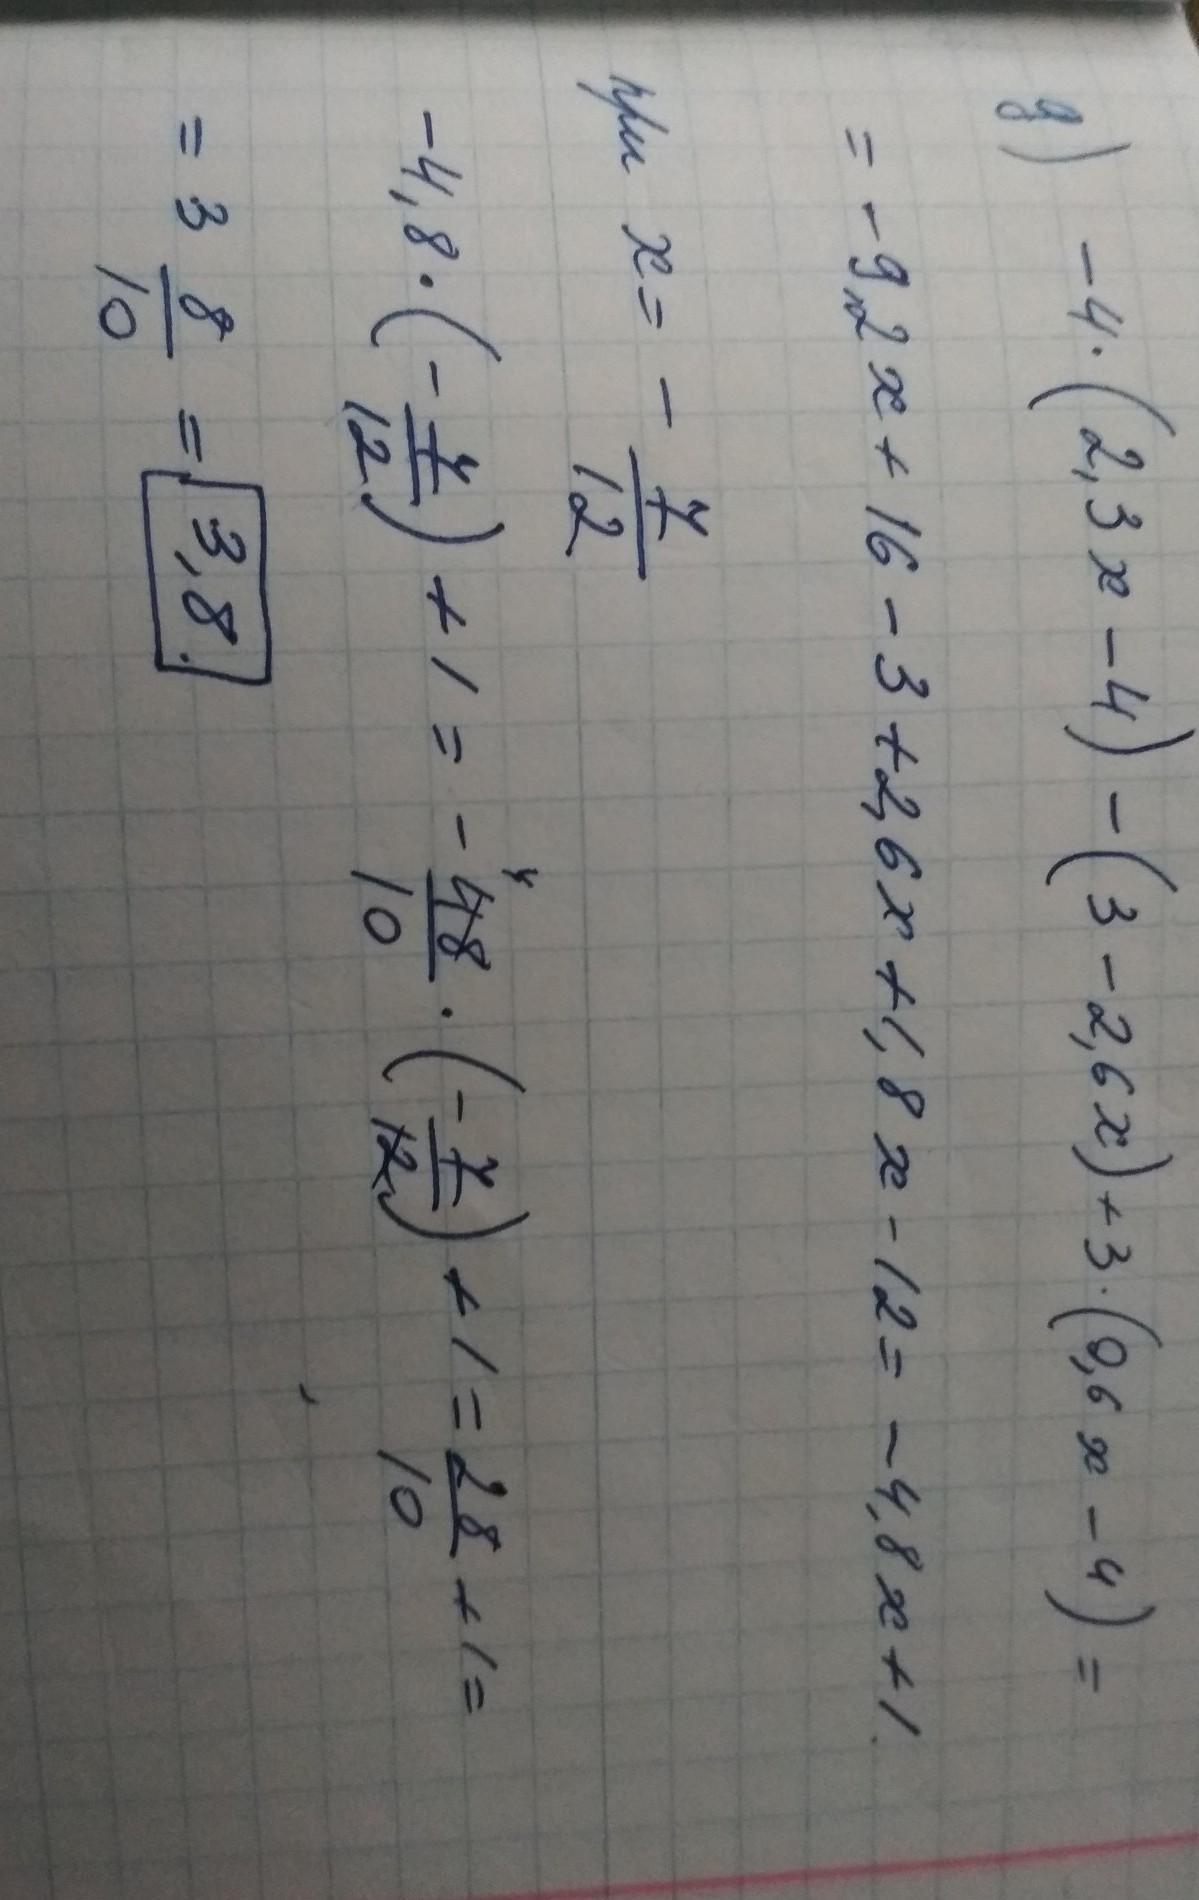 д) -4·(2,3x-4)-(3-2,6x)+3·(0,6x-4)=
=-9,2x+16-3+2,6x+1,8x-12=-4,8x+1.
при x=-7/12
-4,8·(-7/12)+1=-48/10·(-7/12)+1=28/10+1=
=3 8/10=3,8.